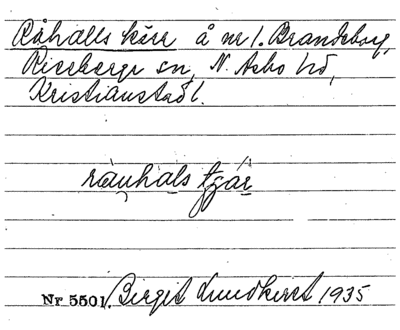 Råhalls kärr å nr 1. Brandeborg,
Riseberga sn, N. Åsbo hd,
Kristianstads l.
Nr 5501. Birgit Lundkvist 1935